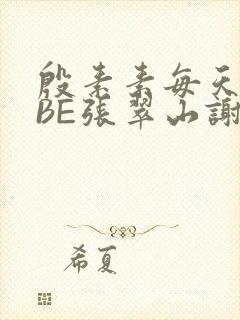 殷素素每天
BE張翠山謝
希夏